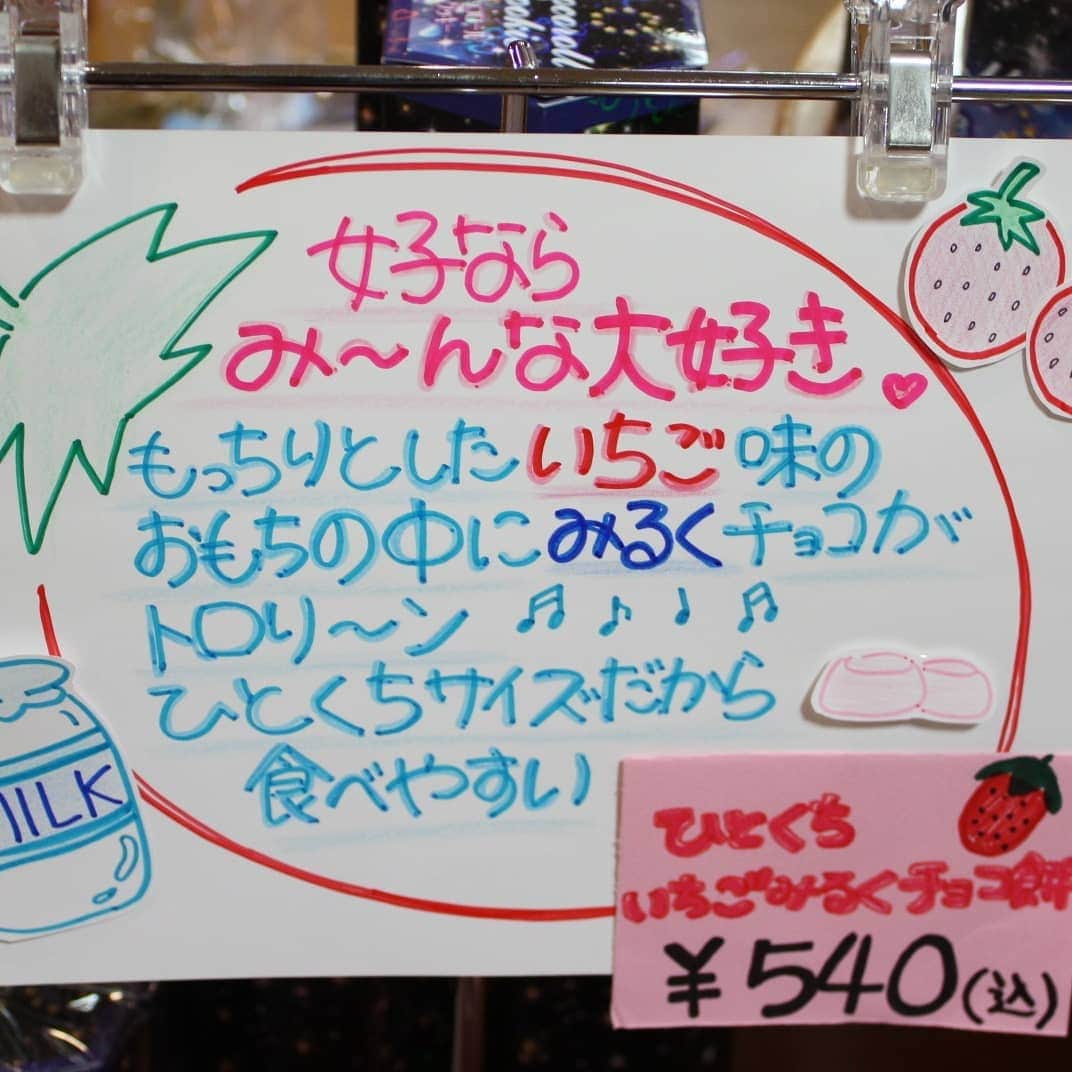 女子なら
み〜んな大好き♥
もっちりとしたいちご味の
おもちの中にみるくチョコが
トロリ〜ン ♫ ♪ ♩ ♫
ひとくちサイズだから
食べやすい
MILK
ひとくち
いちごみるくチョコ餅
¥540(込)